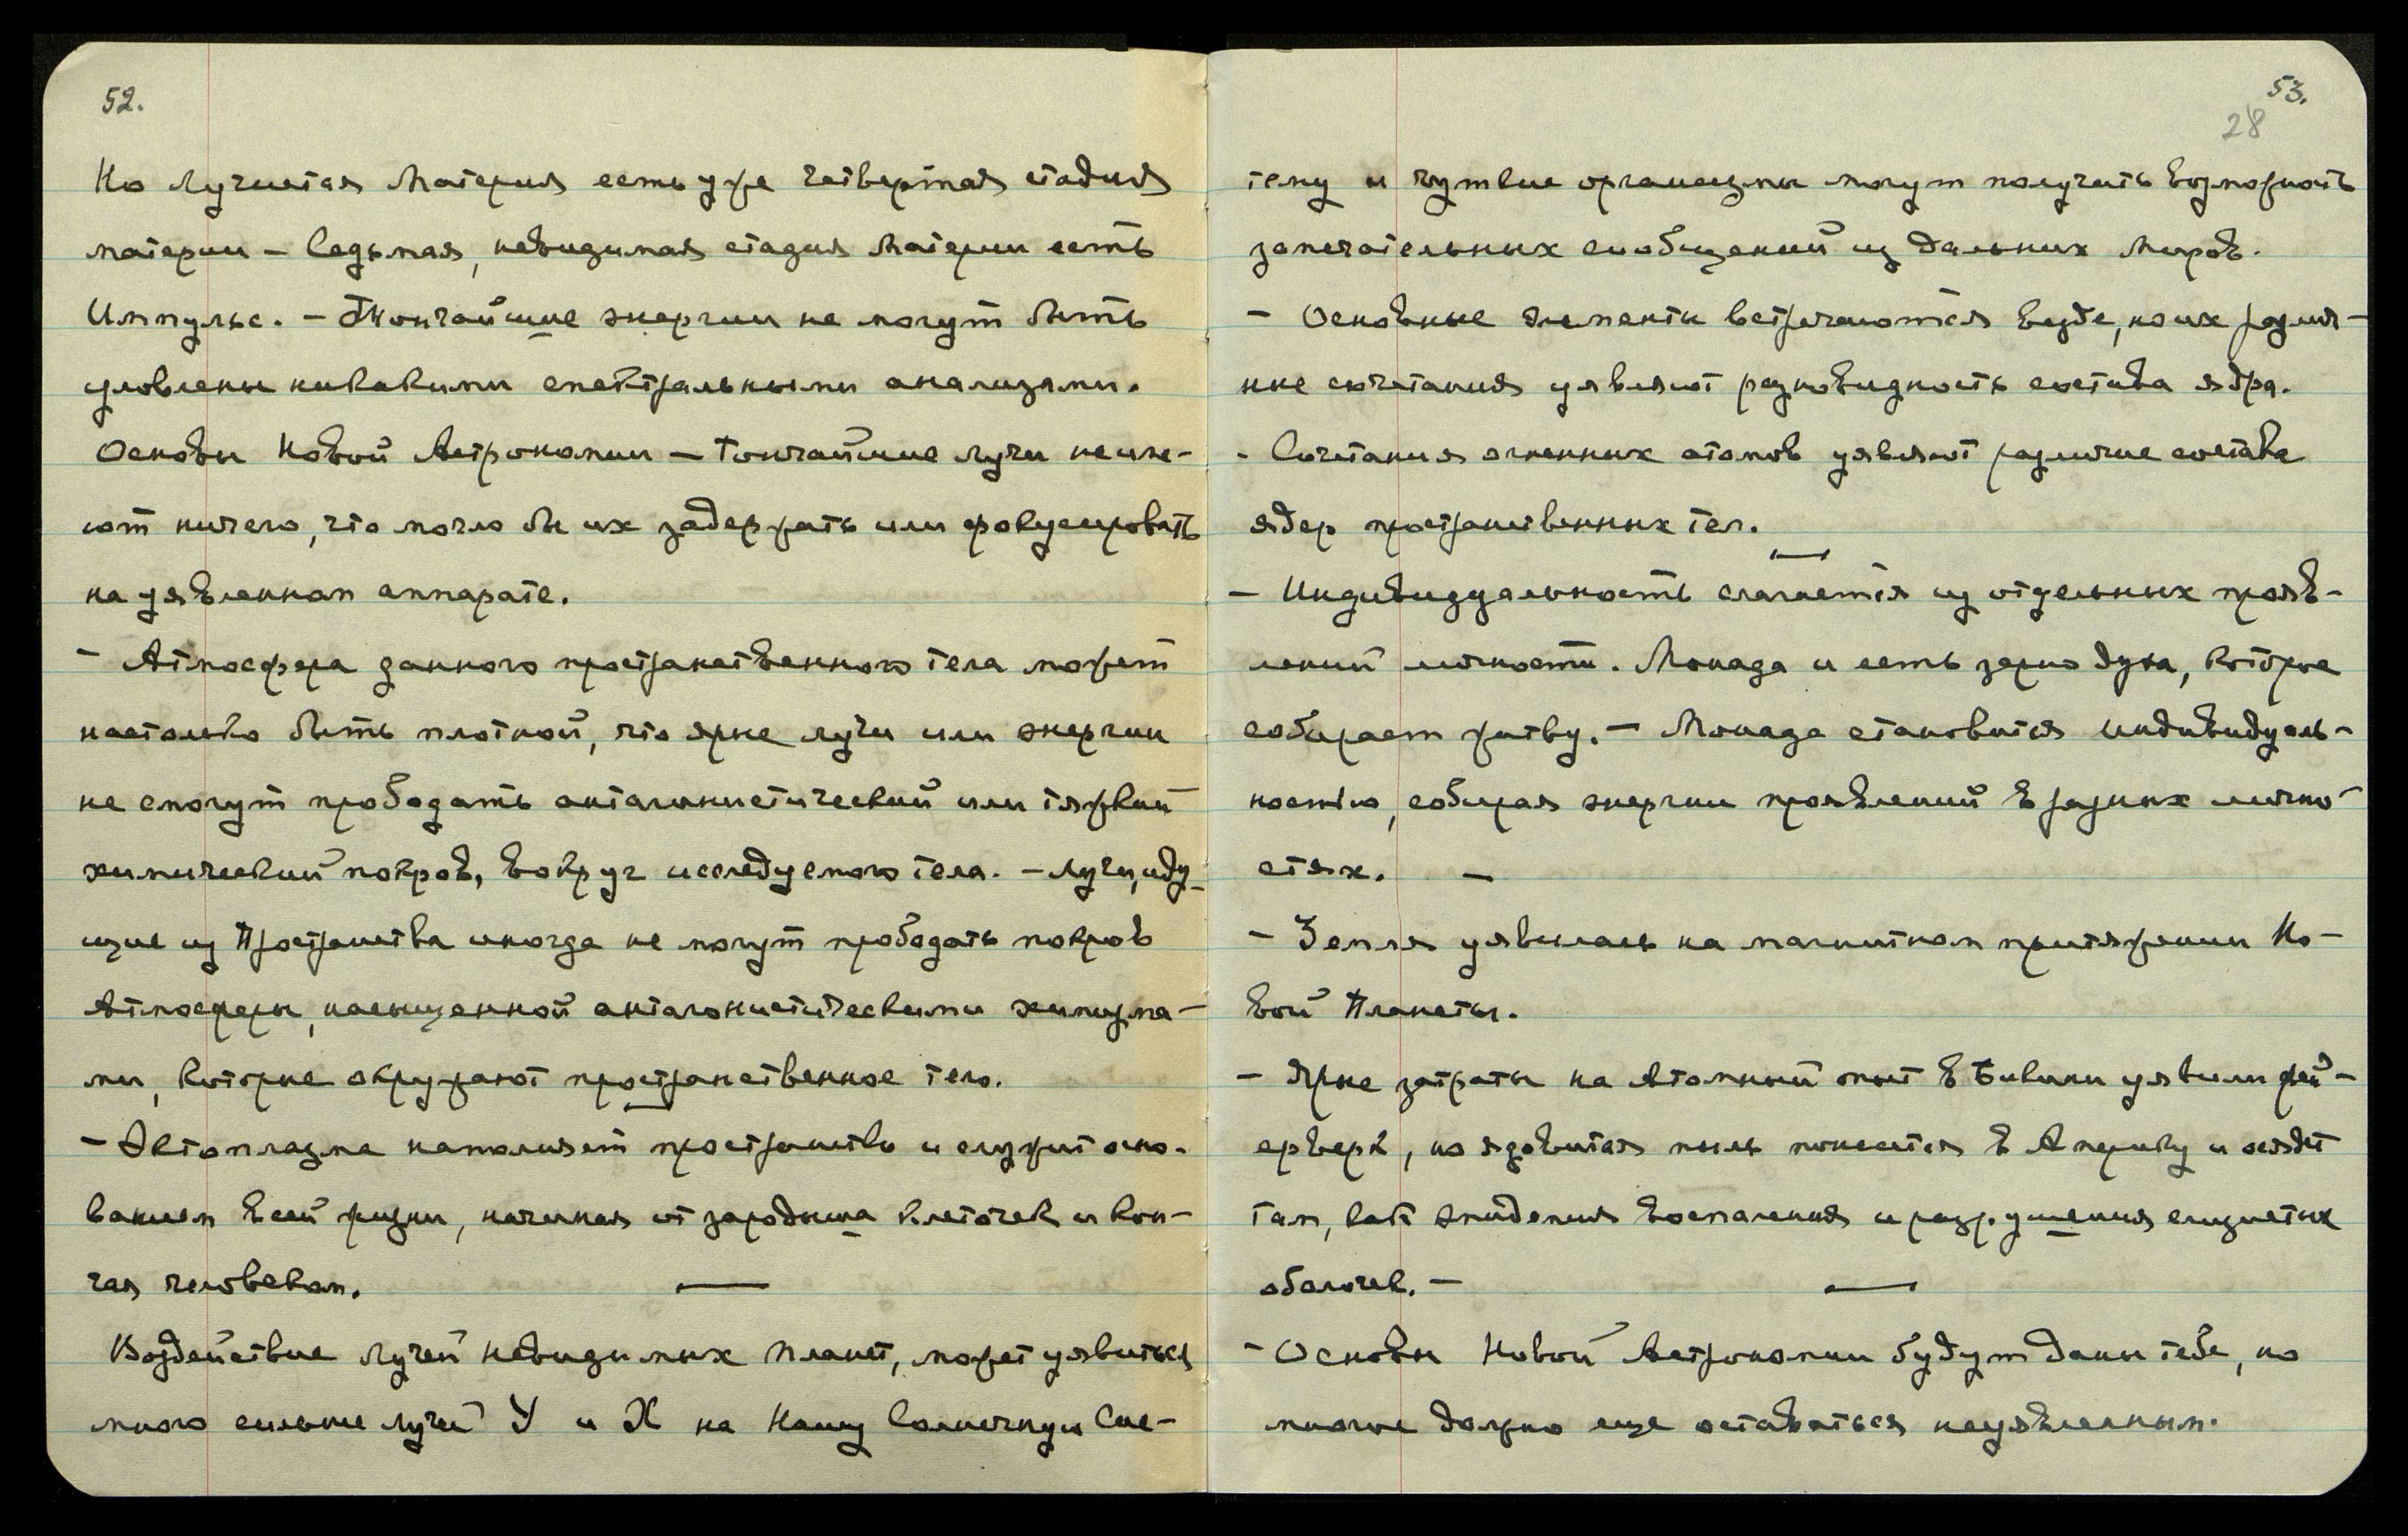 52.
Но Лучистая Материя есть уже четвертая стадия
материи – Седьмая, невидимая стадия Материи есть
Импульс. – Тончайшие энергии не могут быть
уловлены никакими спектральными анализами.
Основы Новой Астрономии – Тончайшие лучи не име-
ют ничего, что могло бы их задержать или фокусировать
на уявленном аппарате.
– Атмосфера данного пространственного тела может
настолько быть плотной, что ярые лучи или энергии
не смогут прободать антагонистический или тяжкий
химический покров, вокруг исследуемого тела. – Лучи, иду-
щие из Пространства иногда не могут прободать покров
Атмосферы, насыщенной антагонистическими химизма-
ми, которые окружают пространственное тело.
– Эктоплазма наполняет пространство и служит осно-
ванием всей жизни, начиная от зародыша клеточек и кон-
чая человеком. –
Воздействие Лучей невидимых планет, может уявиться
много сильнее лучей У и Х на Нашу Солнечную Сис-
53.
28
тему и чуткие организмы могут получить возможность
замечательных сообщений из дальних Миров.
– Основные элементы встречаются везде, но их различ-
ные сочетания уявляют разновидность состава ядра.
– Сочетания огненных атомов уявляют различие состава
ядер пространственных тел.
–
– Индивидуальность слагается из отдельных прояв-
лений личности. Монада и есть зерно духа, которое
собирает жатву. – Монада становится индивидуаль-
ностью, собирая энергии проявлений в разных лично-
стях. –
– Земля уявилась на магнитном притяжении Но-
вой Планеты.
– Ярые затраты на Атомный опыт в Бикини уявили фей-
ерверк, но ядовитая пыль понесется в Америку и осядет
там, как эпидемия воспаления и разрушения слизистых
оболочек. – –
– Основы Новой Астрономии будут даны тебе, но
многое должно еще оставаться неуявленным.